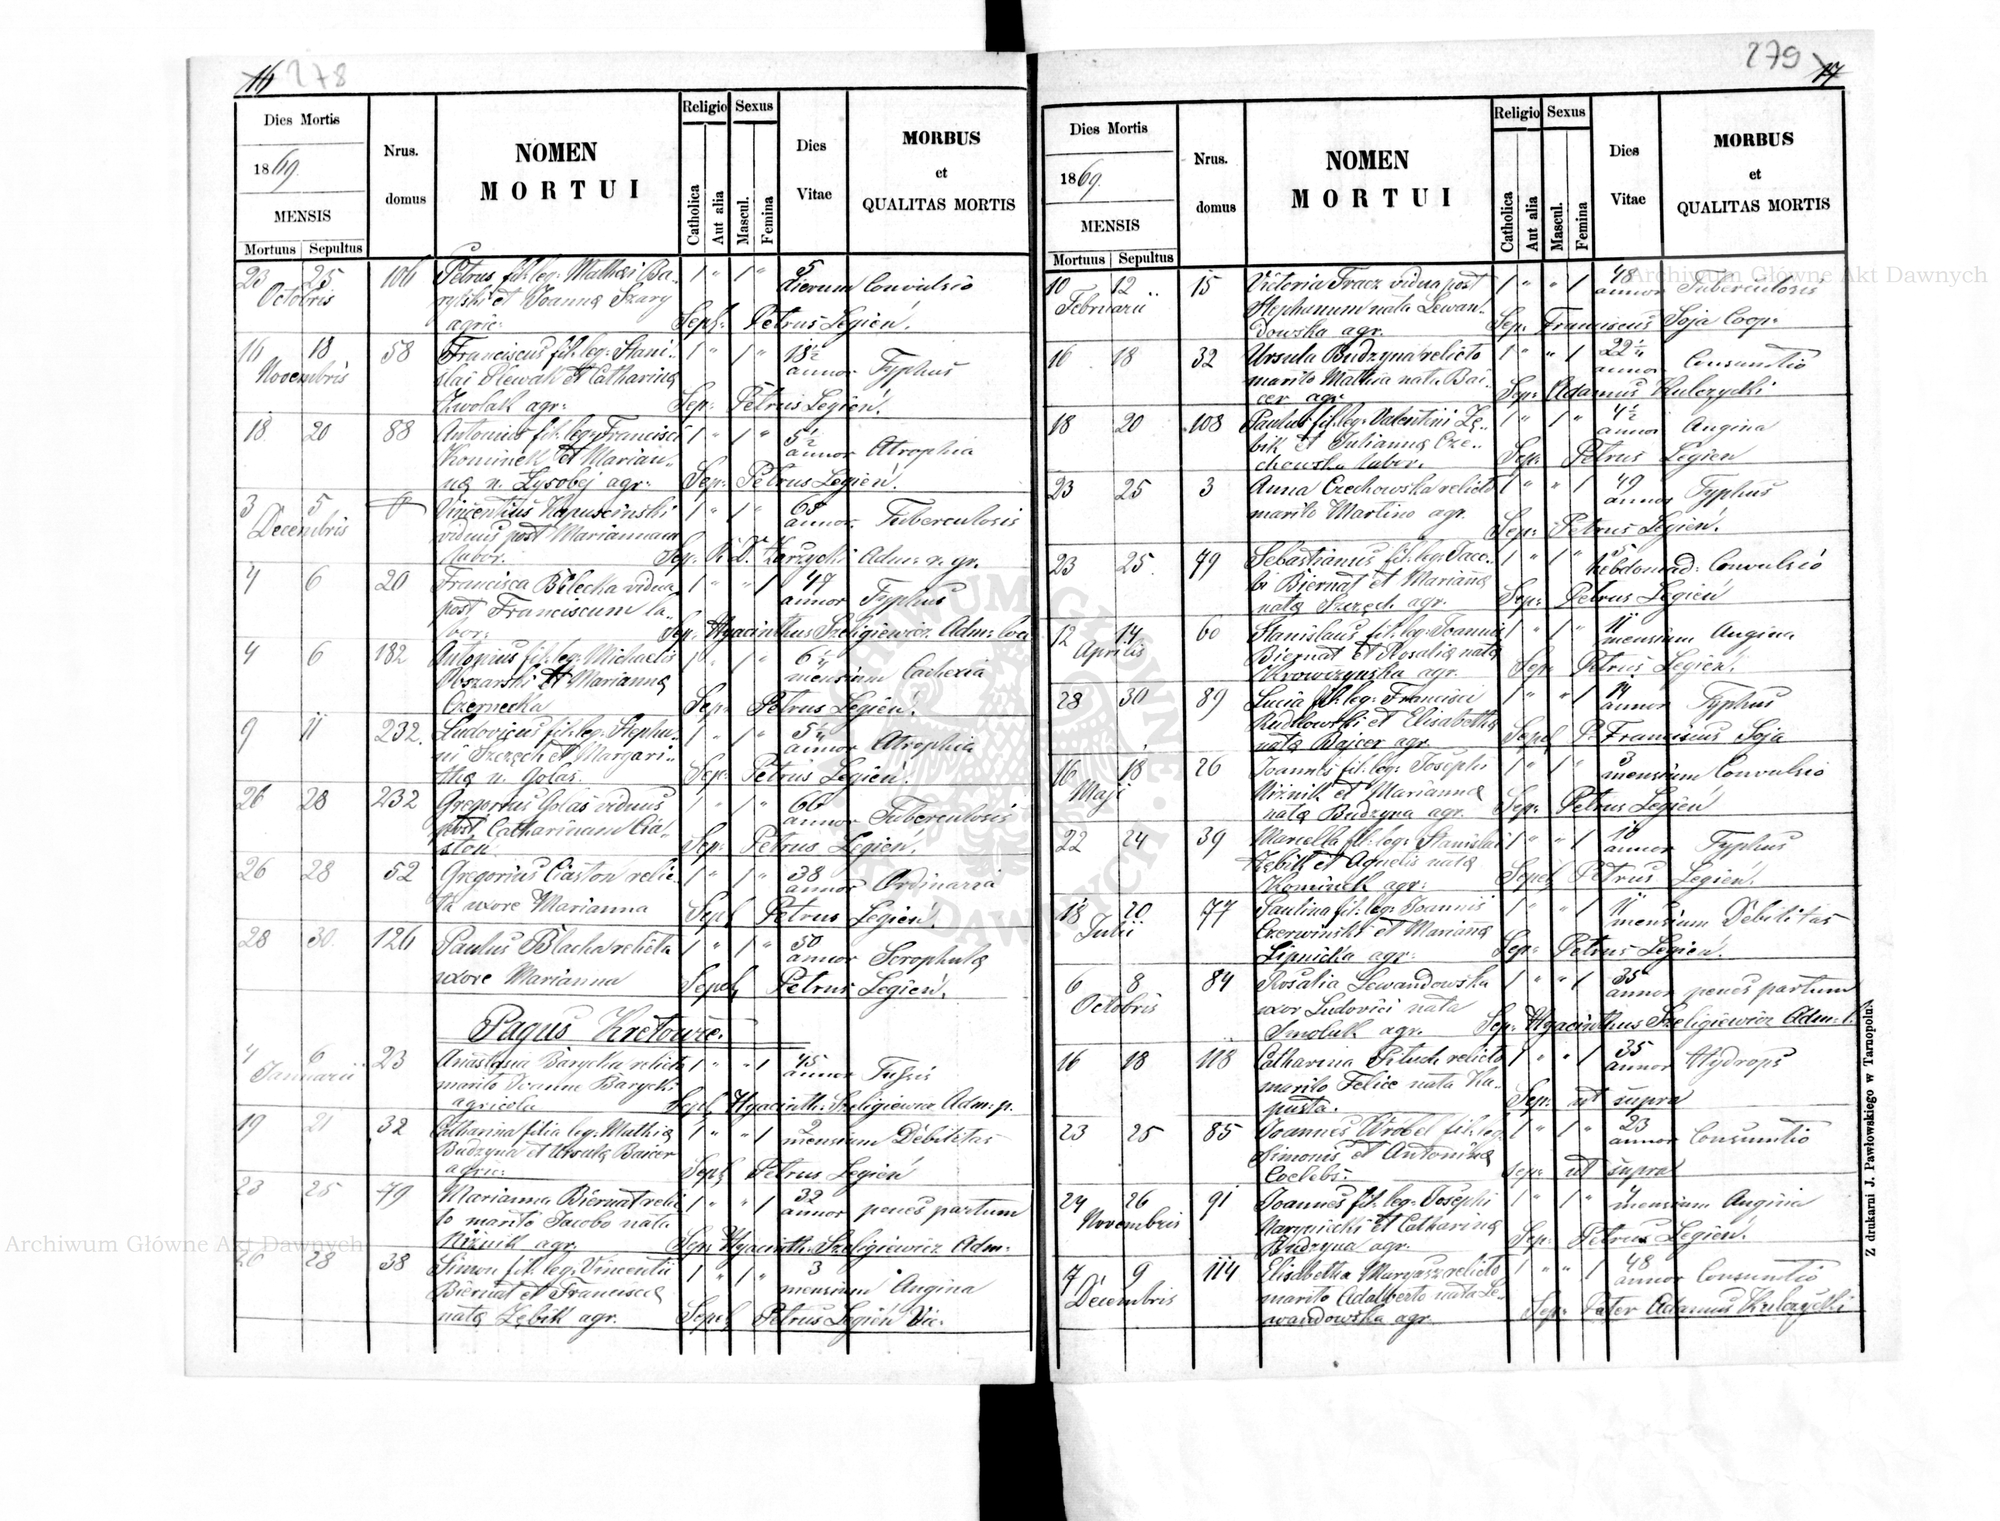 16 278
Dies Mortis
1869.
MENSIS
Mortuus Sepultus
Nrus. domus
NOMEN
MORTUI
Religio
Catholica
Aut alia
Sexus
Mascul.
Femina
Dies
Vitae
MORBUS
et
QUALITAS MORTIS
23 25 106 Petrus fil. leg. Mathæi Ba- 1 " 1 " 5
Octobris rylski et Joanna Szary dierum Convulsio
agric: Seph. Petrus Legień.
16 18 58 Franciscus fil. leg: Stani- 1 " 1 " 18½
Novembris slai Plewak et Catharina annor Typhus
Zwolak agr: Sep: Petrus Legień.
18 20 88 Antonius fil. leg. Francisci 1 " 1 " 5½
Kominek et Marian- annor Atrophia
na n. Łysobej agr: Sep: Petrus Legień.
3 5 Vincentius Kapuscinski 1 " 1 " 68
Decembris viduus post Mariannam annor. Tuberculosis
labor. Sep. R. D. Karzycki Adm: r. gr.
4 6 20 Francisca Bólecka vidua 1 " " 1 47
post Franciscum la- annor Typhus
bor: Sep. Hyacinthus Szeligiewicz Adm: loci
4 6 182 Antonius fil. leg. Michaelis 1 " 1 " 6
Obszarski et Marianna mensium Cachexia
Czernecka Sep: Petrus Legień.
9 11 232. Ludovicus fil. leg. Stepha- 1 " 1 " 5
ni Szczęch et Margari- annor Atrophia
tha n. Golas. Sep: Petrus Legień.
26 28 232 Gregorius Golas viduus 1 " 1 " 66
post Catharinam Cia- annor Tuberculosis
ston Sep: Petrus Legień.
26 28 52 Gregorius Ciaston relic- 1 " 1 " 38
ta uxore Marianna annor Ordinaria
Sepel Petrus Legień.
28 30. 126 Paulus Blacha relicta 1 " 1 " 50
uxore Marianna annor Scrophula
Sepel Petrus Legień.
Pagus Kretowce.
4 6 23 Anastasia Barycka relicto 1 " " 1 45
Januarii marito Joanne Barycki annor Tussis
agricola Sepel Hyacinth: Szeligiewicz Adm: p.
19 21 32 Catharina filia leg: Mathia 1 " " 1 2
Budzyna et Ursula Baicer mensium Debilitas
agric: Sepel Petrus Legień
23 25 79 Marianna Biernat relic- 1 " " 1 32
to marito Jacobo nata annor penes partum
Niżnik agr. Sep: Hyacinth: Szeligiewicz Adm:
26 28 38 Simon fil. leg. Vincentii 1 " 1 " 3
Biernat et Francisca mensium Angina
nata Zębik agr. Sepel Petrus Legień Vic:
279 17
Dies Mortis
1869.
MENSIS
Mortuus Sepultus
Nrus. domus
NOMEN
MORTUI
Religio
Catholica
Aut alia
Sexus
Mascul.
Femina
Dies
Vitae
MORBUS
et
QUALITAS MORTIS
10 12 15 Victoria Tracz vidua post 1 " " 1 48
Februarii Stephanum nata Lewan- annor Tuberculosis
dowska agr. Sep: Franciscus Soja Coop:
16 18 32 Ursula Budzyna relicto 1 " " 1 22
marito Mathia nata Bai- annor Consumtio
cer agr. Sep: Adamus Kulczycki
18 20 108 Paulus fil. leg. Valentini Zę- 1 " 1 " 4½
bik et Julianna Cze- annor Angina
chowska labor. Sep: Petrus Legień
23 25 3 Anna Czechowska relicto 1 " " 1 49
marito Martino agr. annor Typhus
Sep: Petrus Legień.
23 25. 79 Sebastianus fil. leg. Jaco- 1 " 1 " 5
bi Biernat et Marianna hebdomad: Convulsio
nata Szczęch agr. Sep: Petrus Legień
12 14 60 Stanislaus fil. leg. Joannis 1 " 1 " 11
Aprilis Biernat et Rosalia nata mensium Angina
Krowczynska agr. Sep: Petrus Legień.
28 30 89 Lucia fil. leg. Francisci 1 " " 1 14
Rudkowski et Elisabetha annor Typhus
nata Bajcer agr. Sepel P. Franciscus Soja
16 18 26 Joannes fil. leg. Josephi 1 " 1 " 3
Maji Niżnik et Marianna mensium Convulsio
nata Budzyna agr. Sep: Petrus Legień
22 24 39 Marcella fil. leg. Stanislai 1 " " 1 18
Zębik et Agnetis nata annor Typhus
Kominek agr: Sepel Petrus Legień.
18 20 77 Paulina fil. leg. Joannis 1 " " 1 11
Julii Czerwinski et Marianna mensium Debilitas
Lipnicka agr: Sep: Petrus Legień.
6 8 84 Rosalia Lewandowska 1 " " 1 35
Octobris uxor Ludovici nata annor penes partum
Smolak agr. Sep: Hyacinthus Szeligiewicz Adm: l.
16 18 118 Catharina Pituch relicto 1 " " 1 35
marito Felice nata Ka- annor Hydrops
pusta. Sep: ut supra
23 25 85 Joannes Wróbel fil. leg. 1 " 1 " 23
Simonis et Antonina annor Consumtio
Coelebs. Sep: ut supra
24 26 91 Joannes fil. leg. Josephi 1 " 1 "
Novembris Waryniecki et Catharina mensium Angina
Budzyna agr. Sep: Petrus Legień.
7 9 114 Elisabetha Margasz relicto 1 " " 1 48
Decembris marito Adalberto nata Le- annor Consumtio
wandowska agr. Sep: Pater Adamus Kulczycki
Z drukarni J. Pawłowskiego w Tarnopolu.
Archiwum Główne Akt Dawnych
Archiwum Główne Akt Dawnych
ARCHIWUM GŁÓWNE AKT DAWNYCH